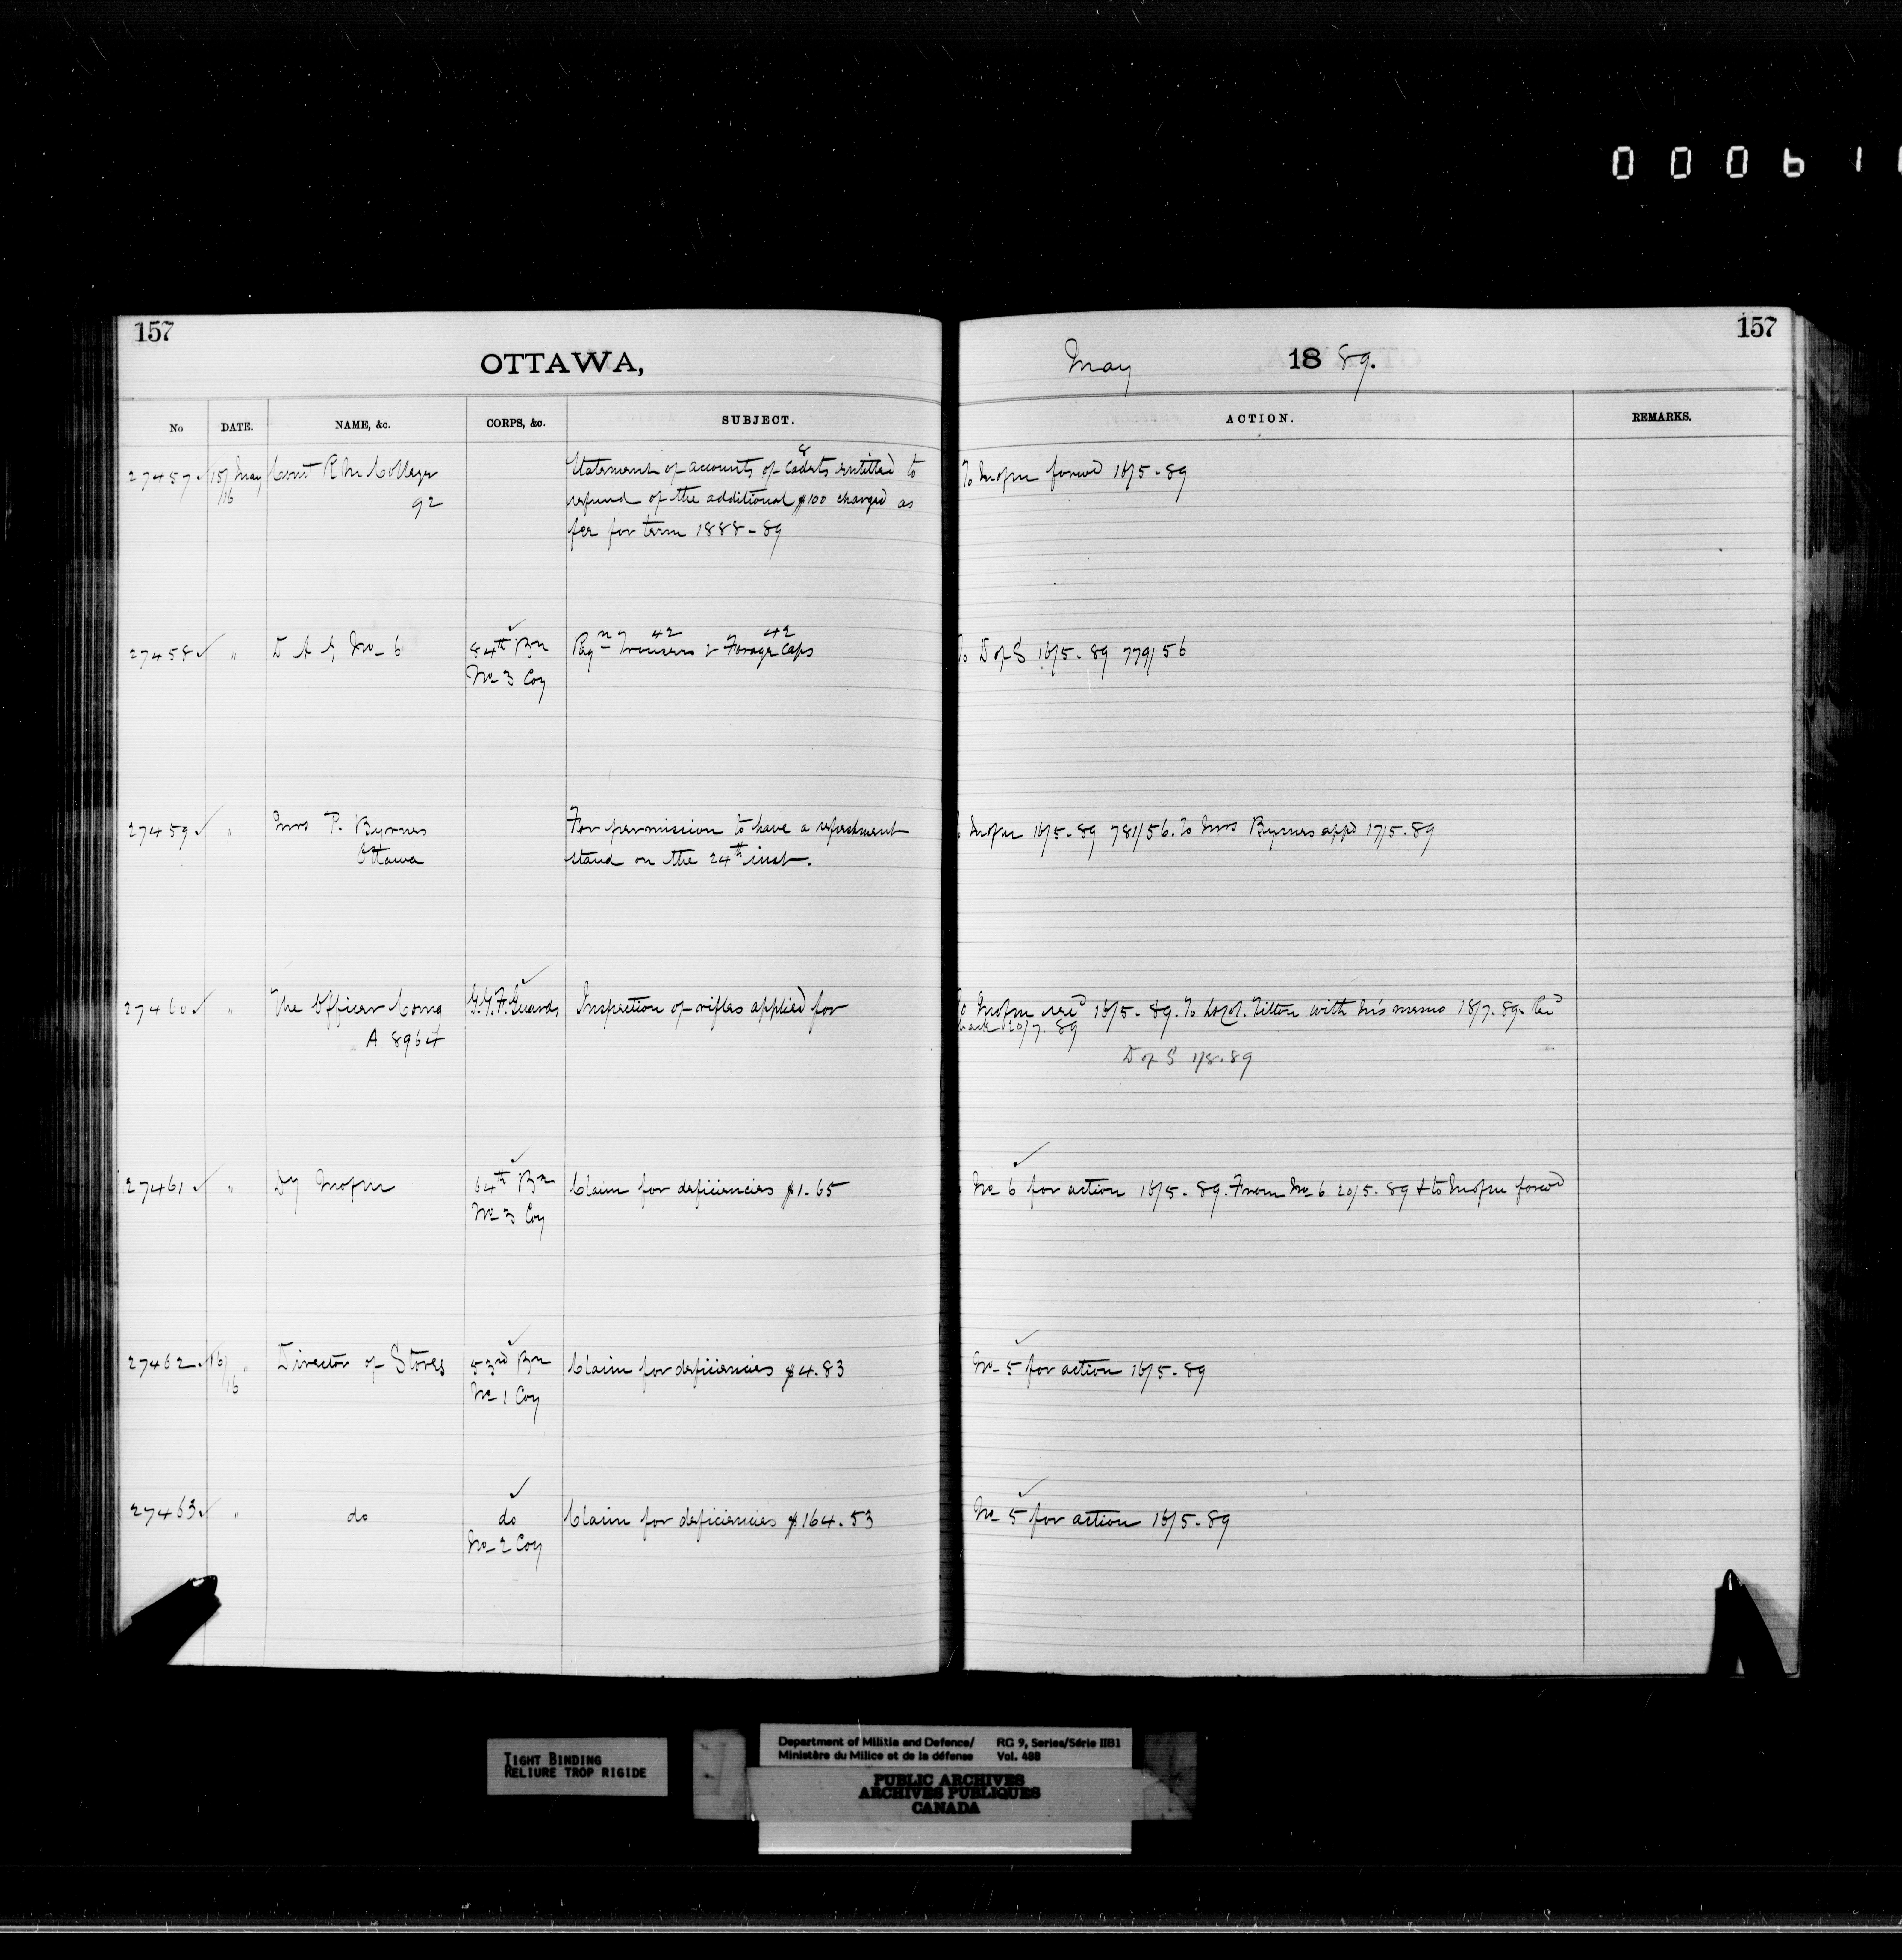 000611
157
157
OTTAWA,
May 1889.
No DATE. NAME, &c. CORPS, &c. SUBJECT. ACTION. REMARKS.
27457 15/16 May Comt R M College
92
Statement of accounts of 8 Cadets entitled to
refund of the additional $100 charged as
fee for term 1888-89
To MofM forwd 16/5-89
27458 " D A G No 6
84th Bn
No 3 Coy
Reqn 42 Trousers & 42 Forage Caps
To D of S 16/5-89 779/56
27459 " Mrs P. Byrnes
Ottawa
For permission to have a refreshment
stand on the 24th inst.
MofM 16/5-89 781/56. To Mrs Byrnes appd 17/5-89
27460 " The Officer Comg
A 8964
G.G.F. Guards
Inspection of rifles applied for
To MofM 16/5-89. To Lt Col. Tilton with M's memo 18/7-89. Recd
back 20/7-89
D of S 1/8-89
27461 " Dy MofM
64th Bn
No 3 Coy
Claim for deficiencies $1.65
No 6 for action 16/5-89. From No 6 20/5-89 & to MofM forwd
27462 16/16 " Director of Stores
53rd Bn
No 1 Coy
Claim for deficiencies $4.83
No 5 for action 16/5-89
27463 " do
do
No 2 Coy
Claim for deficiencies $164.53
No 5 for action 16/5-89
TIGHT BINDING
RELIURE TROP RIGIDE
Department of Militia and Defence/
Ministère du Milice et de la défense
RG 9, Series/Série IIB1
Vol. 488
PUBLIC ARCHIVES
ARCHIVES PUBLIQUES
CANADA